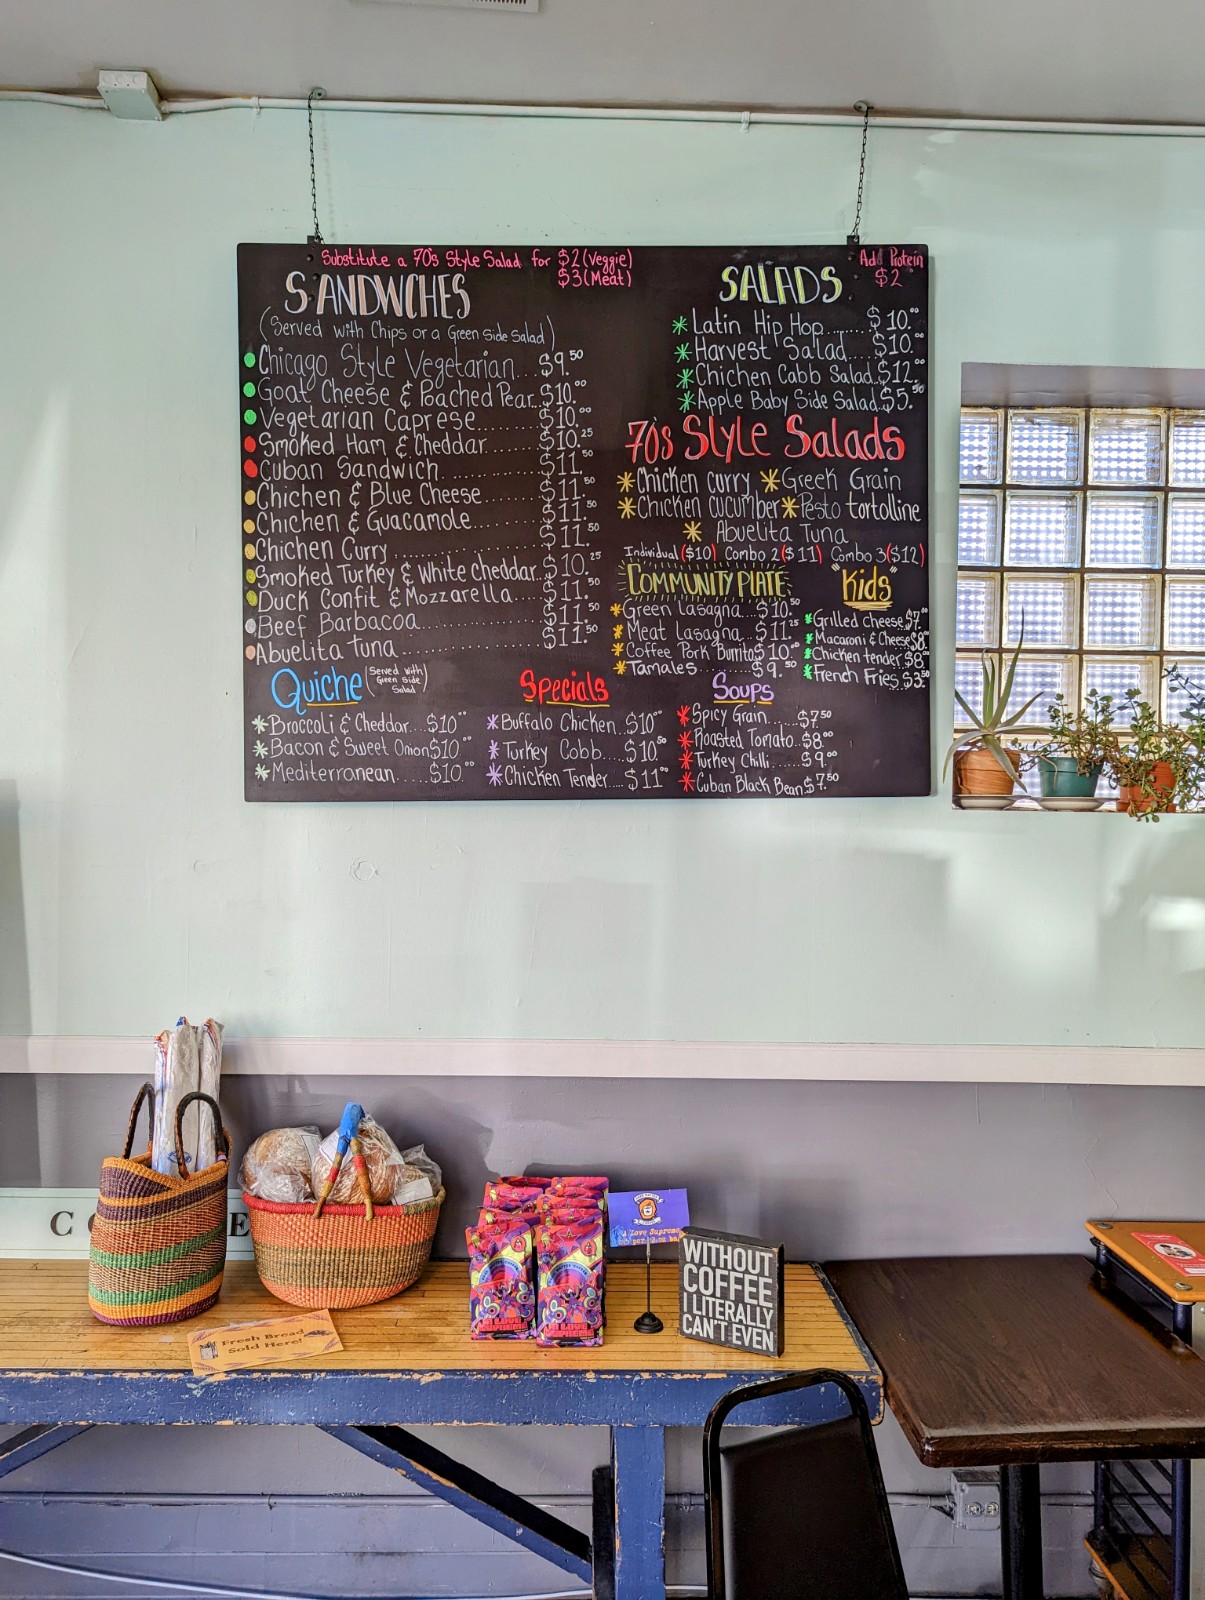 Substitute a 70's Style Salad for $2 (Veggie)
$3 (Meat)
SANDWCHES
(Served with Chips or a Green Side Salad)
Chicago Style Vegetarian...$9.50
Goat Cheese & Poached Pear..$10.00
Vegetarian Caprese..........$10.00
Smoked Ham & Cheddar..........$10.25
Cuban Sandwich..........$11.50
Chichen & Blue Cheese..........$11.50
Chichen & Guacamole..........$11.50
Chichen Curry..........$11.50
Smoked Turkey & White Cheddar..$10.25
Duck Confit & Mozzarella..........$11.50
Beef Barbacoa..........$11.50
Abuelita Tuna..........$11.50
Add Protein
$2
SALADS
Latin Hip Hop........$10.00
Harvest Salad.....$10.00
Chichen Cabb Salad..$12.00
Apple Baby Side Salad..$5.50
70's Style Salads
Chicken curry Greek Grain
Chicken cucumber Pesto tortolline
Abuelita Tuna
Individual ($10) Combo 2 ($11) Combo 3 ($12)
COMMUNITY PLATE
Green Lasagna...$10.50
Meat Lasagna...$11.25
Coffee Pork Burritos $10.00
Tamales........$9.50
"Kids"
Grilled cheese..$7.00
Macaroni & Cheese $8.00
Chicken tender.$8.00
French Fries..$3.50
Quiche (Served with Green Side Salad)
Broccoli & Cheddar...$10.00
Bacon & Sweet Onion $10.00
Mediterranean......$10.00
Specials
Buffalo Chicken..$10.00
Turkey Cobb....$10.50
Chicken Tender....$11.00
Soups
Spicy Grain......$7.50
Roasted Tomato..$8.00
Turkey Chilli......$9.00
Cuban Black Bean.$7.50
C E
Fresh Bread
Sold Here!
A Love Supreme
WITHOUT
COFFEE
I LITERALLY
CAN'T EVEN